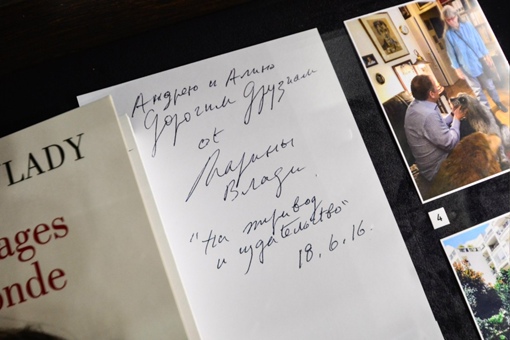 Андрею и Алине
Дорогим Друзьям
от
Марины
Влади.
"На перевод
и издательство"
18.6.16.
LADY
ages
onde
4